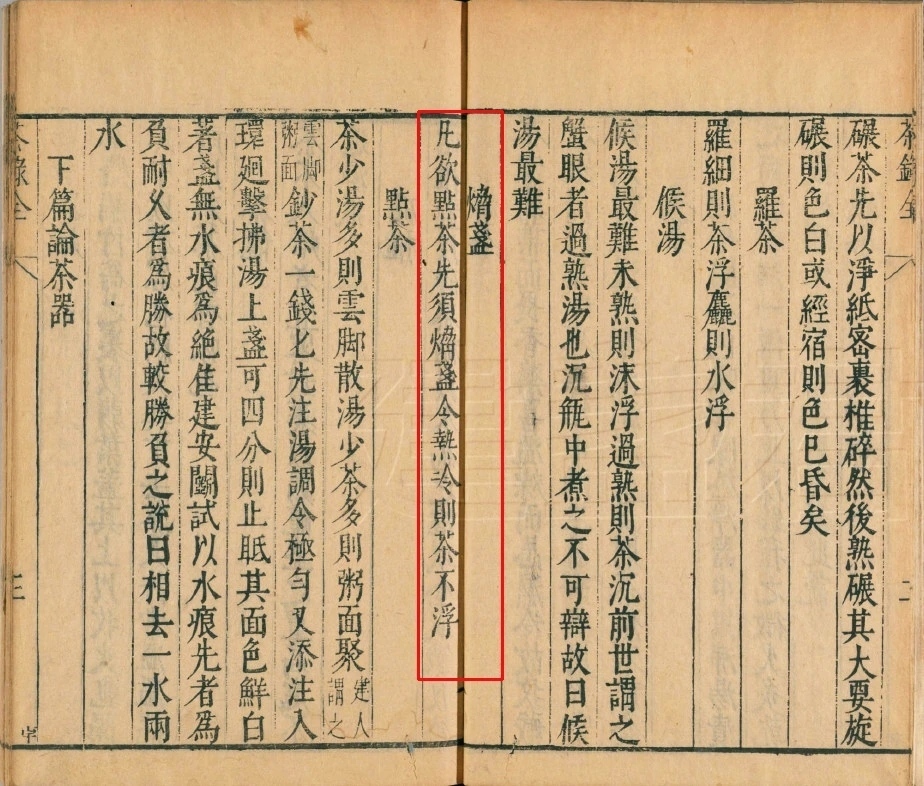 茶錄全
二
碾茶先以淨紙密裹椎碎然後熟碾其大要旋
碾則色白或經宿則色巳昏矣
羅茶
羅細則茶浮麤則水浮
候湯
候湯最難未熟則沫浮過熟則茶沉前世謂之
蟹眼者過熟湯也沉甁中煮之不可辯故曰候
湯最難
熁盞
凡欲點茶先須熁盞令熱冷則茶不浮
點茶
茶少湯多則雲脚散湯少茶多則粥面聚建人謂之
雲脚粥面鈔茶一錢匕先注湯調令極勻又添注入
環廻擊拂湯上盞可四分則止眡其面色鮮白
著盞無水痕爲絶佳建安鬭試以水痕先者爲
負耐久者爲勝故較勝負之說曰相去一水兩
水
下篇論茶器
茶錄全
三